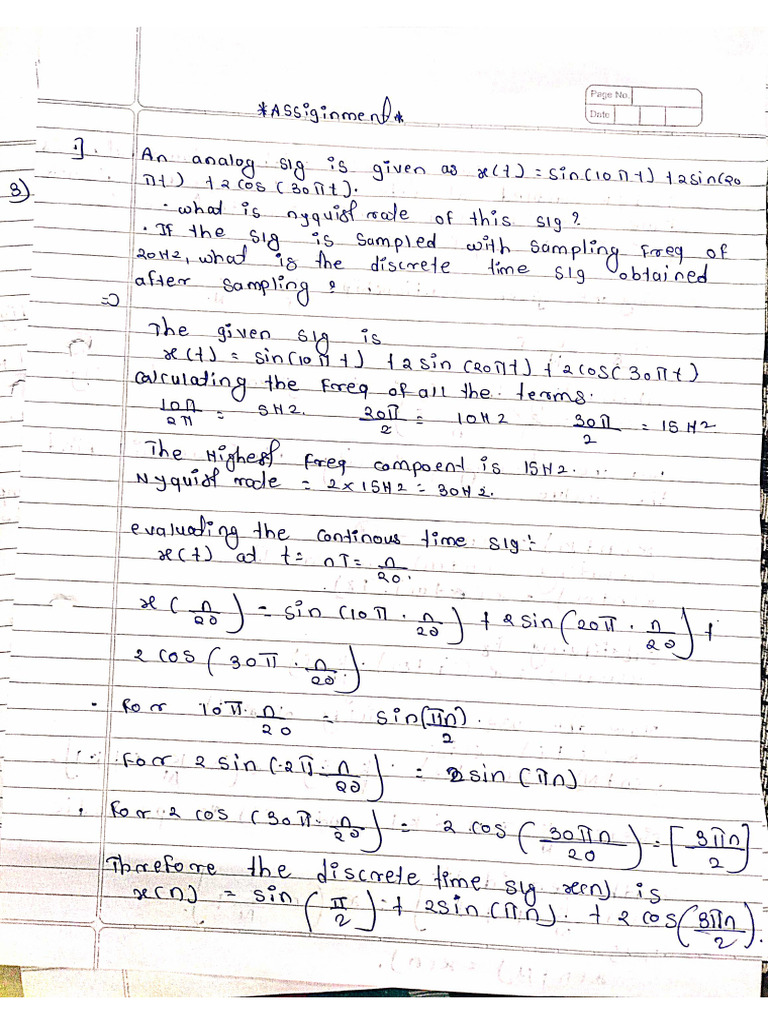 Page No.
Date
*Assiginment*
1].
An analog sig is given as x(t) = sin(10πt) + 2sin(20
πt) + 2cos(30πt).
3)
• what is nyquist rate of this sig?
• If the sig is sampled with sampling freq of
20Hz, what is the discrete time sig obtained
after sampling?
=>
The given sig is
x(t) = sin(10πt) + 2sin(20πt) + 2cos(30πt)
calculating the freq of all the terms.
10π/2π = 5Hz. 20π/2 = 10Hz 30π/2 = 15Hz
The Highest freq compoent is 15Hz.
Nyquist rade = 2×15Hz = 30Hz.
evaluating the continous time sig:-
x(t) at t = nT = n/20.
x(n/20) = sin(10π · n/20) + 2sin(20π · n/20) +
2 cos(30π · n/20).
• for 10π · n/20 = sin(πn)/2.
• for 2 sin(2π · n/20) = 2sin(πn)
• for 2 cos(30π · n/20) = 2 cos(30πn/20) = [3πn/2]
Therefore the discrete time sig x(n) is
x(n) = sin(π/2) + 2sin(πn). + 2cos(3πn/2).